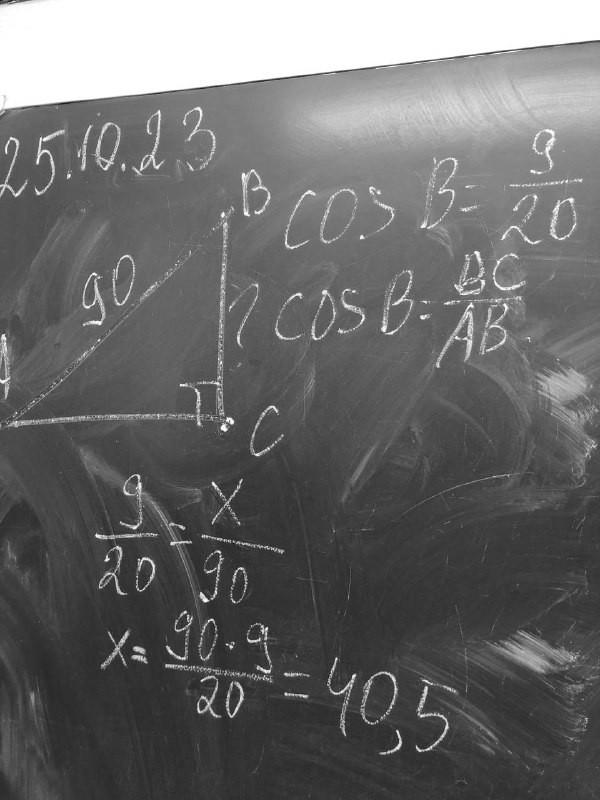 25.10.23
B
cos B = 9/20
90
? cos B = BC/AB
A
C
9/20 = x/90
x = 90·9/20 = 40,5